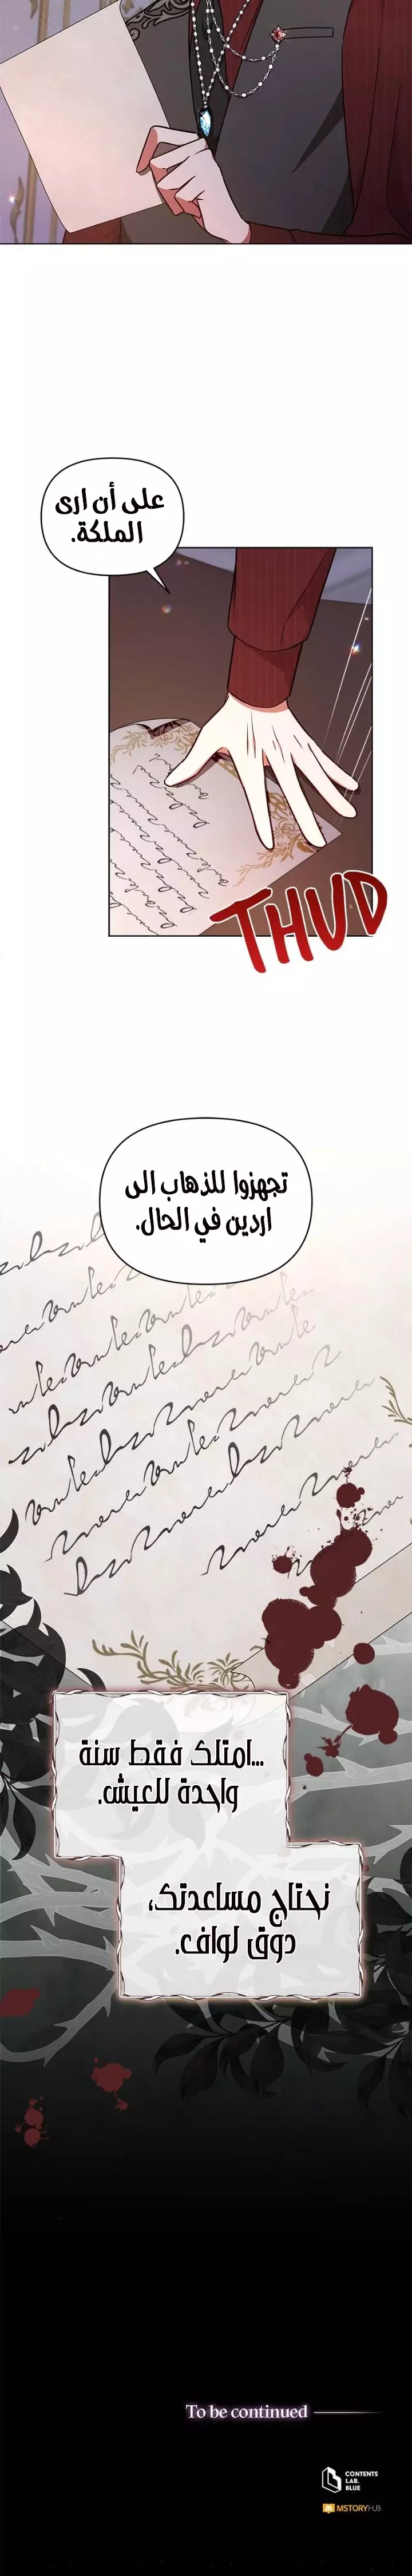 على أن ارى
الملكة.
THUD
تجهزوا للذهاب الى
اردين في الحال.
...امتلك فقط سنة
واحدة للعيش.
نحتاج مساعدتك،
دوق لواف.
To be continued
CONTENTS
LAB.
BLUE
MSTORYHUB